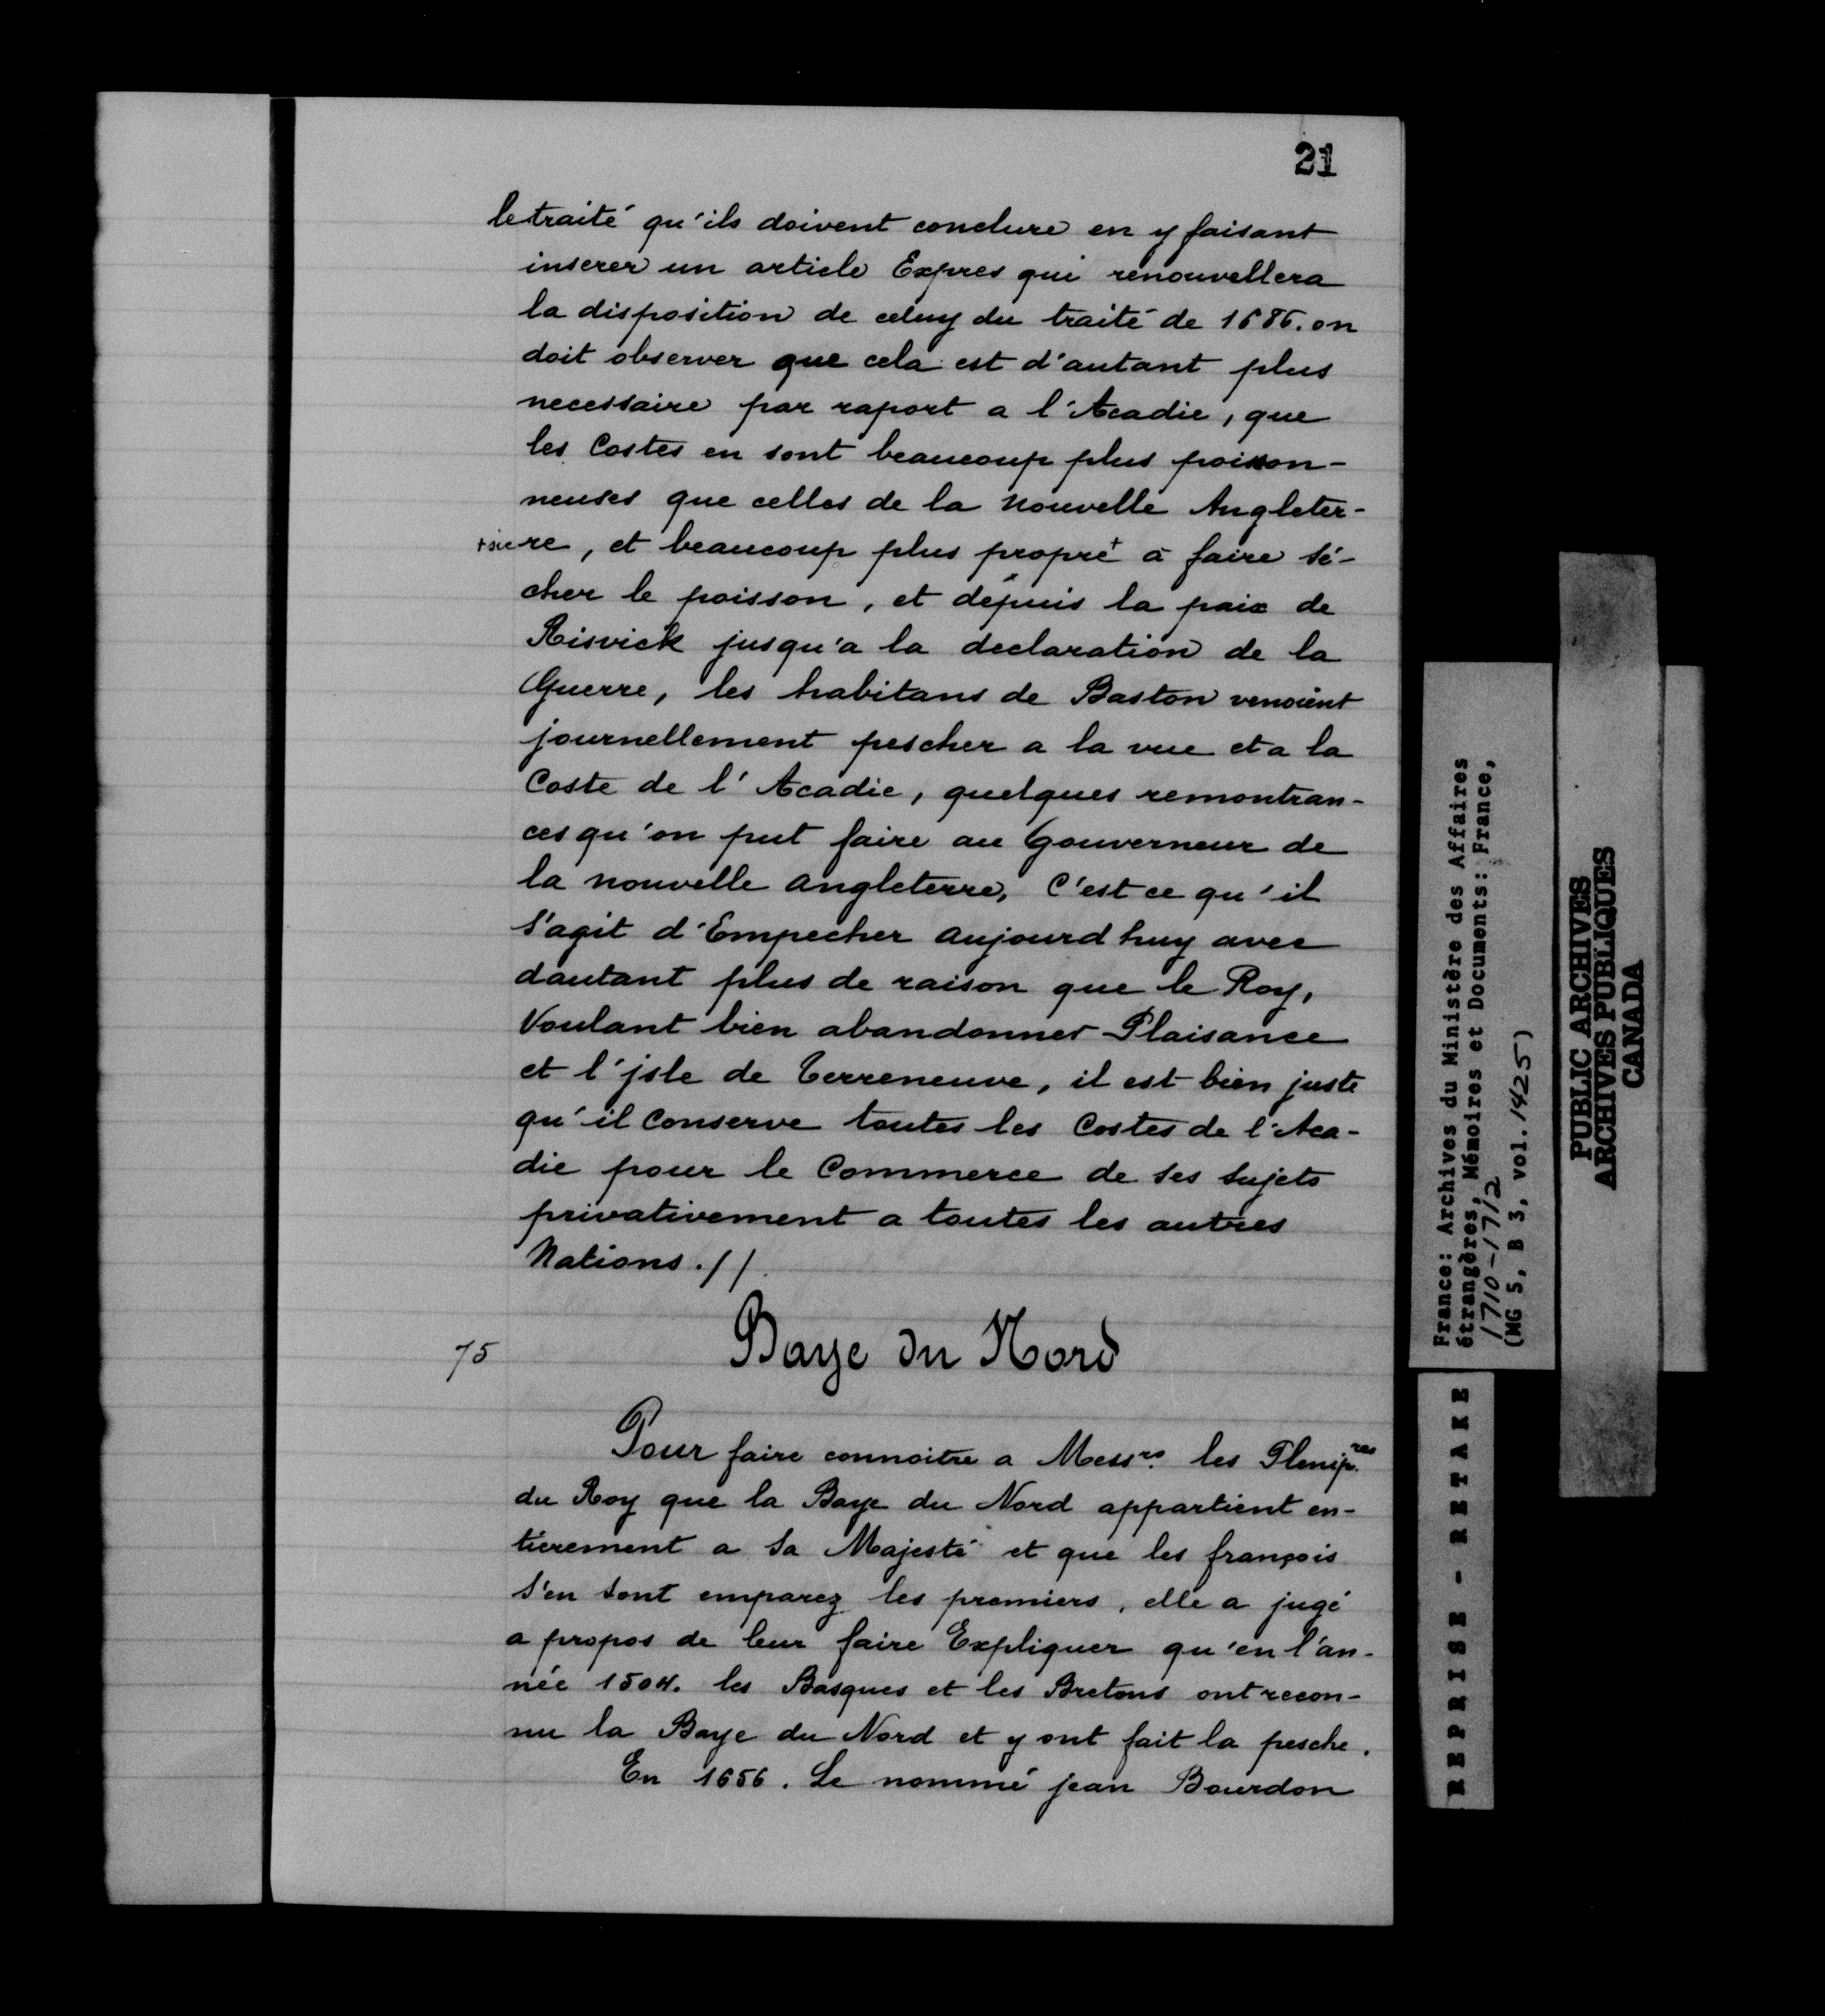 21
le traité qu'ils doivent conclure en y faisant
inserer un article Expres qui renouvellera
la disposition de celuy du traité de 1686. on
doit observer que cela est d'autant plus
necessaire par raport a l'Acadie, que
les Costes en sont beaucoup plus poisson-
neuses que celles de la nouvelle Angleter-
+sic re, et beaucoup plus propre+ à faire sé-
cher le poisson, et depuis la paix de
Risvick jusqu'a la declaration de la
Guerre, les habitans de Baston venoient
journellement pescher a la vue et a la
Coste de l'Acadie, quelques remontran-
ces qu'on put faire au Gouverneur de
la nouvelle angleterre, C'est ce qu'il
s'agit d'Empecher aujourd huy avec
dautant plus de raison que le Roy,
Voulant bien abandonner Plaisance
et l'jsle de Terreneuve, il est bien juste
qu'il Conserve toutes les Costes de l'Aca-
die pour le Commerce de ses sujets
privativement a toutes les autres
Nations.//.
75
Baye du Nord
Pour faire connoitre a Messrs. les Plenip.res
du Roy que la Baye du Nord appartient en-
tierement a sa Majesté et que les françois
s'en sont emparez les premiers, elle a jugé
a propos de leur faire Expliquer qu'en l'an-
née 1504. les Basques et les Bretons ont recon-
nu la Baye du Nord et y ont fait la pesche.
En 1656. Le nommé jean Bourdon
France: Archives du Ministère des Affaires
étrangères, Mémoires et Documents: France,
1710-1712
(MG 5, B 3, vol. 1425)
PUBLIC ARCHIVES
ARCHIVES PUBLIQUES
CANADA
REPRISE - RETAKE